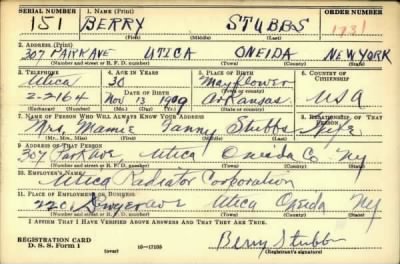 SERIAL NUMBER 1. NAME (Print) ORDER NUMBER
151 BERRY STUBBS 1731
(First) (Middle) (Last)
2. ADDRESS (Print)
307 PARK AVE UTICA ONEIDA NEW YORK
(Number and street or R. F. D. number) (Town) (County) (State)
3. TELEPHONE 4. AGE IN YEARS 5. PLACE OF BIRTH 6. COUNTRY OF CITIZENSHIP
Utica 30 Mayflower
DATE OF BIRTH (Town or county)
2-2164 Nov 13 1909 Arkansas USA
(Exchange) (Number) (Mo.) (Day) (Yr.) (State or country)
7. NAME OF PERSON WHO WILL ALWAYS KNOW YOUR ADDRESS 8. RELATIONSHIP OF THAT PERSON
Mrs. Mamie Stubbs Wife
(Mr., Mrs., Miss) (First) (Middle) (Last)
9. ADDRESS OF THAT PERSON
307 Park Ave Utica Oneida Co NY
(Number and street or R. F. D. number) (Town) (County) (State)
10. EMPLOYER'S NAME
Utica Radiator Corporation
11. PLACE OF EMPLOYMENT OR BUSINESS
Dwyer ave Utica Oneida NY
(Number and street or R. F. D. number) (Town) (County) (State)
I AFFIRM THAT I HAVE VERIFIED ABOVE ANSWERS AND THAT THEY ARE TRUE.
REGISTRATION CARD
D. S. S. Form 1 16-17105 Berry Stubbs
(Registrant's signature)